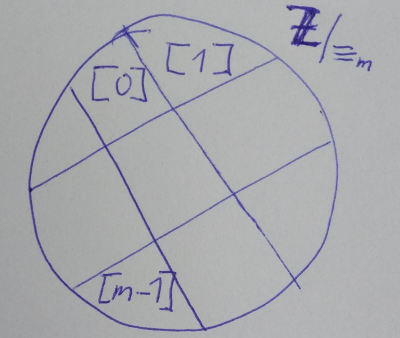 ℤ/≡ₘ
[0] [1]
[m-1]